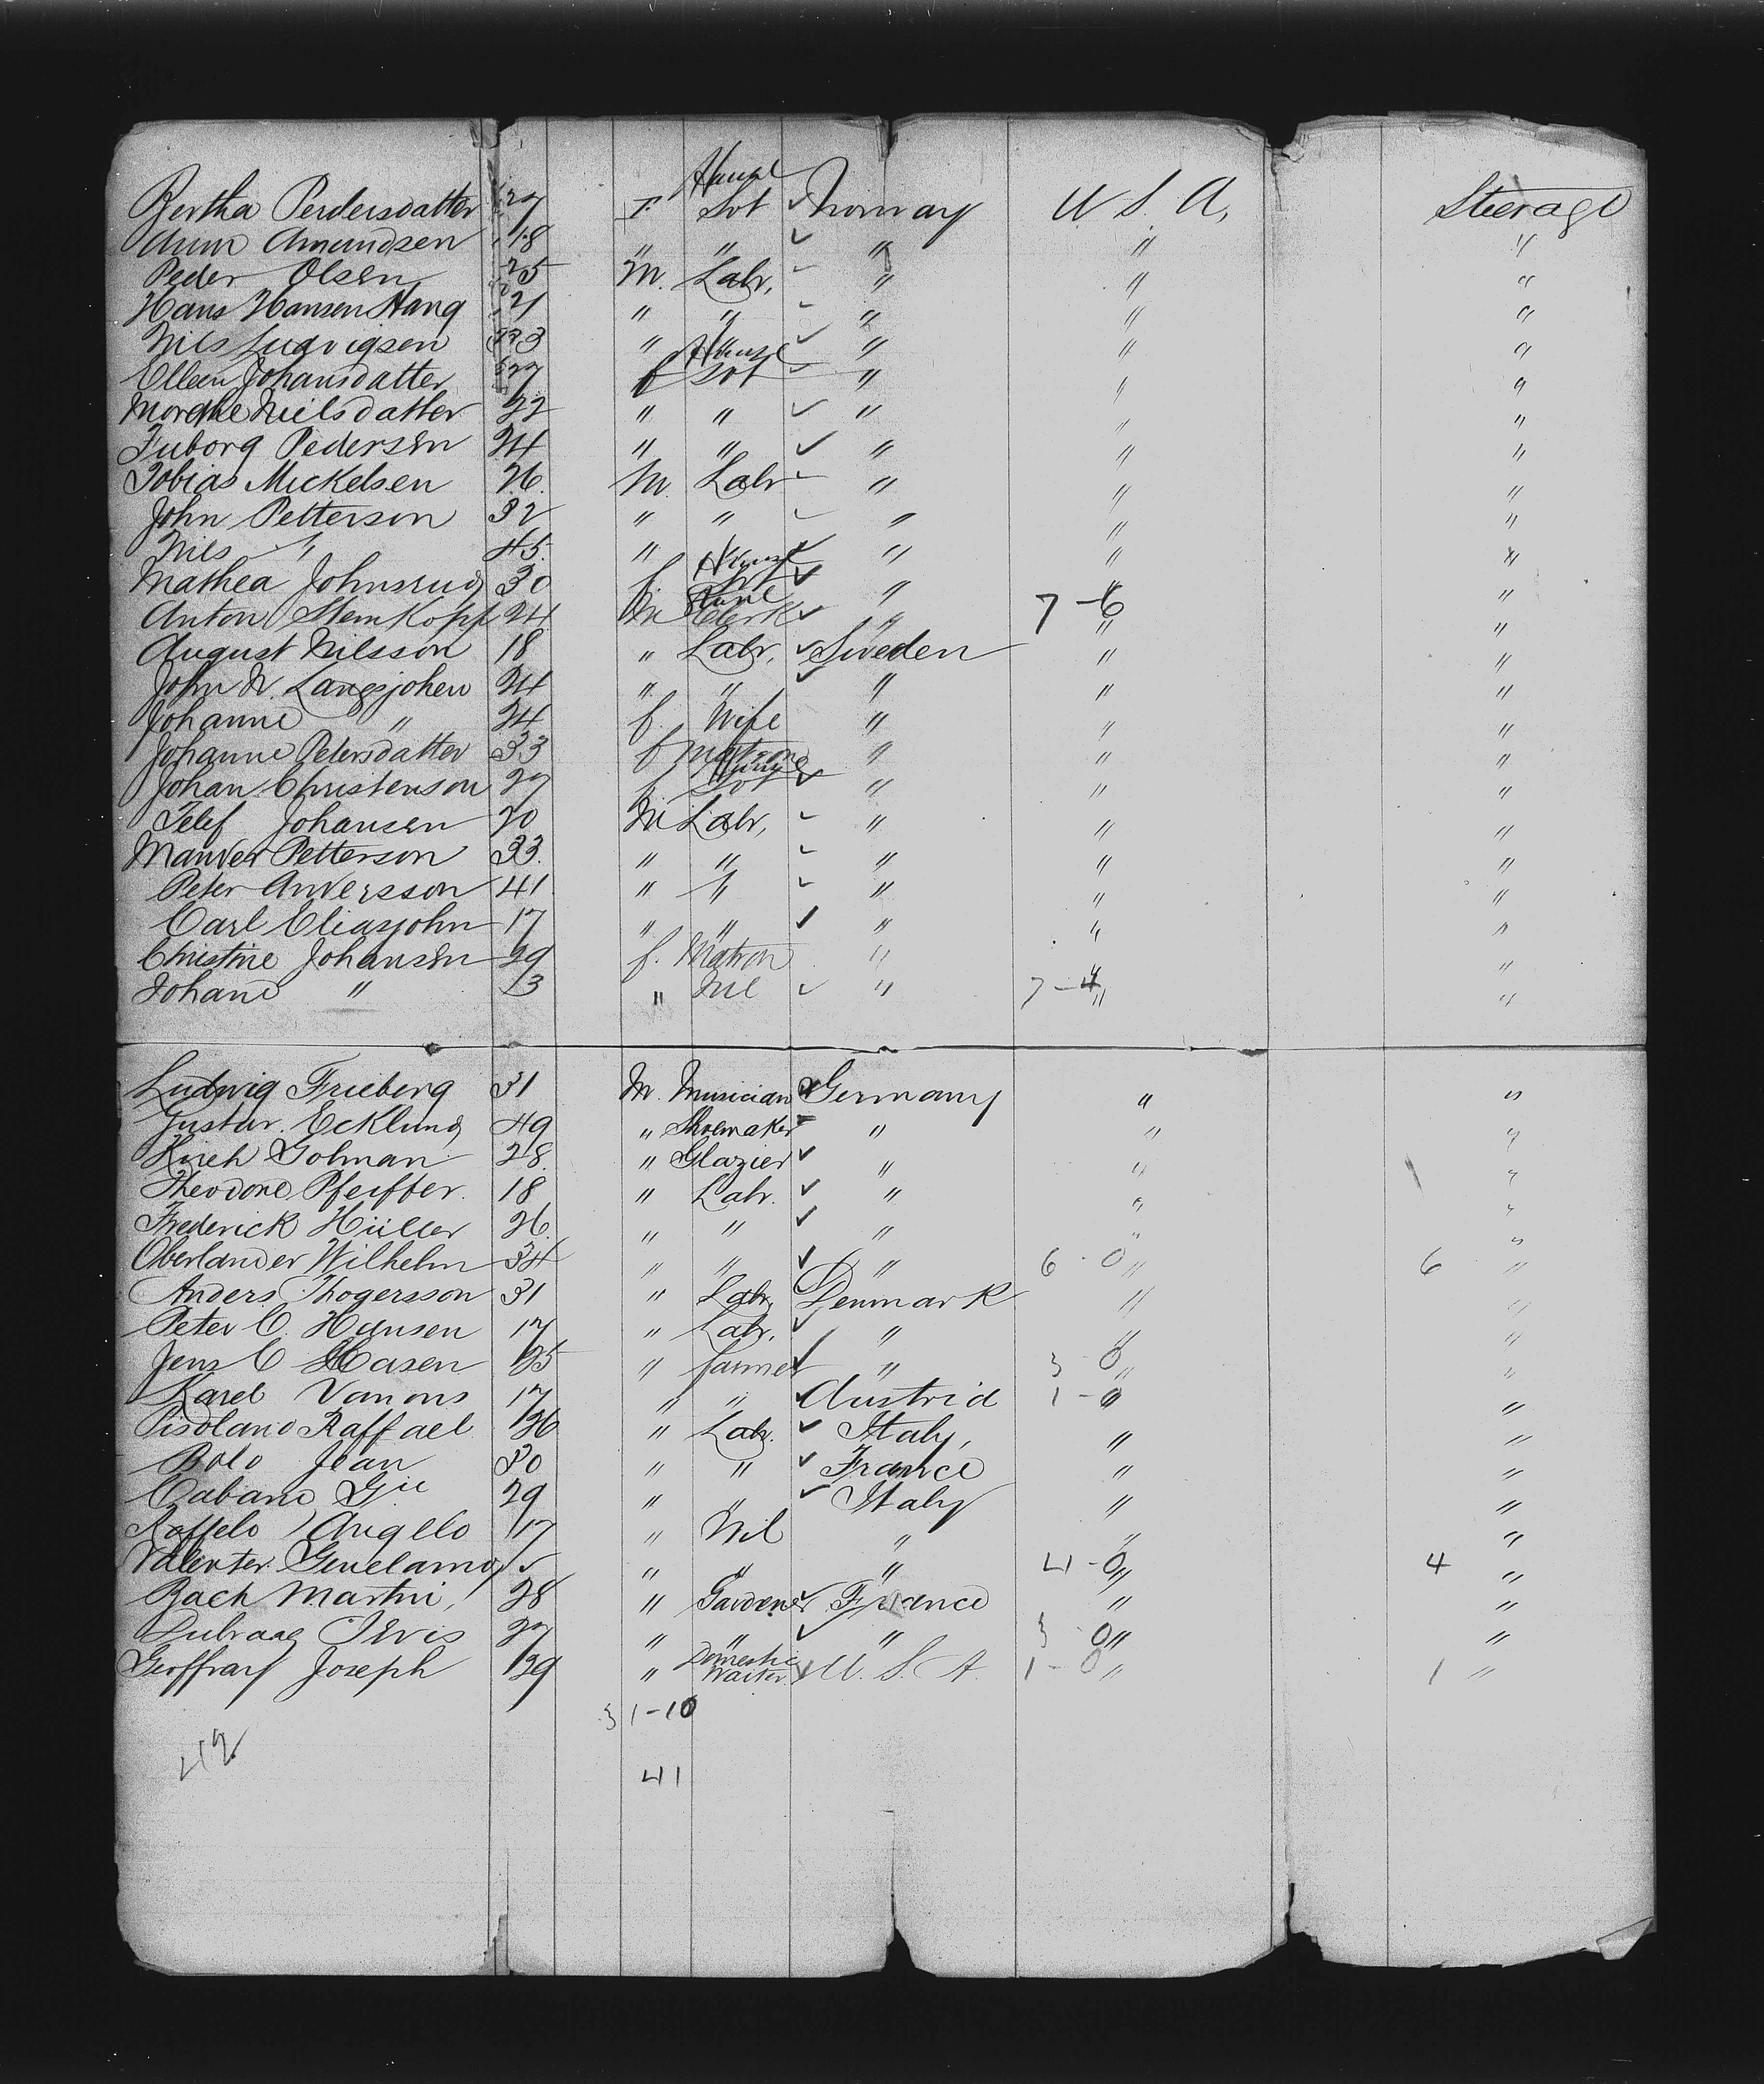 Bertha Perdersdatter 27 F. House Svt ✓ Norway U S. A, Steerage
Anne Amundsen 18 " " ✓ " " "
Peder Olsen 25 M. Labr, ✓ " " "
Hans Hansen Hang 21 " " ✓ " " "
Nils Ludvigsen 23 " " ✓ " " "
Elleen Johansdatter 27 f House Svt ✓ " " "
Nielsdatter 22 " " ✓ " " "
Pedersen 24 " " ✓ " " "
Tobias Mickelsen 26. M. Labr ✓ " " "
John Petterson 32 " " ✓ " " "
Nils " 45. " " ✓ " " "
Mathea Johnsrud 30 f House Svt ✓ " " "
Anton Stemkopf 24 M Clerk ✓ " 7-6 " "
August Nilsson 18 " Labr. ✓ Sweden " "
John N. Langsjohen 24 " " ✓ " " "
Johanne " 24 f. Wife " " "
Johanne Petersdatter 33 f Matron " " "
Johan Christenson 27 f House Svt ✓ " " "
Telef Johansen 20 M Labr, ✓ " " "
Petterson 33. " " ✓ " " "
Peter Andersson 41 " " ✓ " " "
Carl Eliasjohn 17 " " ✓ " " "
Christine Johansen 29 f. Matron " " "
Johane " 13 " Nil ✓ " 7-4 " "
Ludwig Frieberg 31 M. Musician ✓ Germany " "
Gustav. Ecklund 49 " Shoemaker ✓ " " "
Hirch Golman 28. " Glazier ✓ " " "
Theodore Pfeiffer. 18 " Labr. ✓ " " "
Frederick Hüller 26. " " ✓ " " "
Oberlander Wilhelm 34 " " ✓ " 6-0 " 6 "
Anders. Thogersson 31 " Labr, ✓ Denmark " "
Peter C. Hansen 17 " Labr. ✓ " " "
Jens C Hasen 25 " farmer ✓ " 3-0 " "
Karel Vanons 17 " " ✓ Austria 1-0 " "
Pisolano Raffael 26 " Labr. ✓ Italy, " "
Bolo Jean 30 " " ✓ France " "
Cabane Gie 29 " " ✓ Italy " "
Raffelo Angelo 17 " Nil " " "
" " " 4-0 " 4 "
Bach Martni, 28 " Gardener ✓ France " "
27 " " ✓ " 3-0 " "
Geoffray Joseph 29 " Domestic Waiter. ✓ U. S. A. 1-0 " 1 "
31-10
41